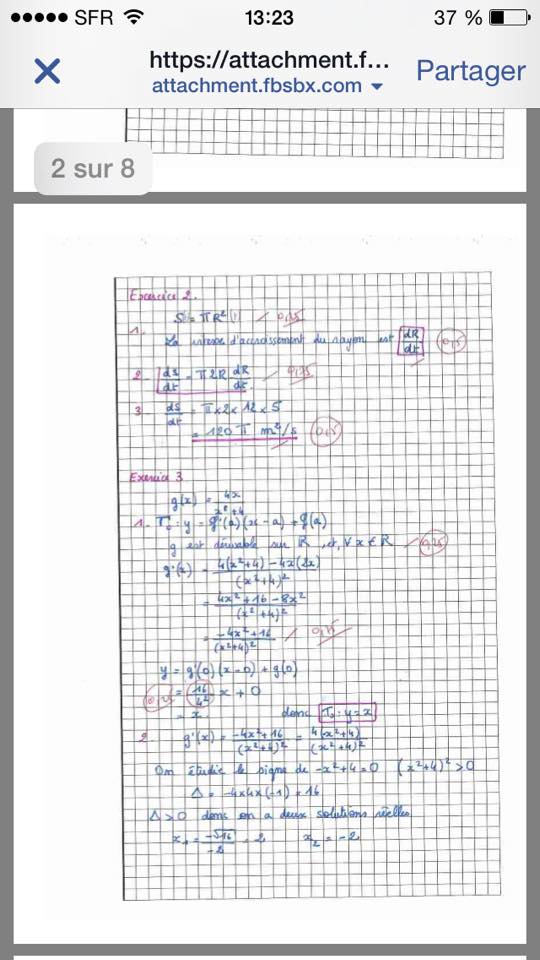 SFR 13:23 37 %
https://attachment.f...
attachment.fbsbx.com
Partager
2 sur 8
Exercice 2.
S = πR² 0,25
1. La vitesse d'accroissement du rayon est dR/dt 0,5
2. dS/dt = π2R dR/dt 0,75
3. dS/dt = π×2×12×5
= 120 π m²/s 0,5
Exercice 3
g(x) = 4x/(x²+4)
1. T₀ : y = g'(a)(x-a) + g(a)
g est dérivable sur ℝ et, ∀ x ∈ ℝ 0,25
g'(x) = (4(x²+4) - 4x(2x))/(x²+4)²
= (4x²+16-8x²)/(x²+4)²
= (-4x²+16)/(x²+4)² 0,75
y = g'(0)(x-0) + g(0)
0,25 = 16/4² x + 0
= x donc T₀ : y = x
2. g'(x) = (-4x²+16)/(x²+4)² = 4(-x²+4)/(x²+4)²
On étudie le signe de -x²+4=0 (x²+4)²>0
Δ = -4×4×(-1) = 16
Δ>0 donc on a deux solutions réelles
x₁ = -√16/-2 = 2 x₂ = -2